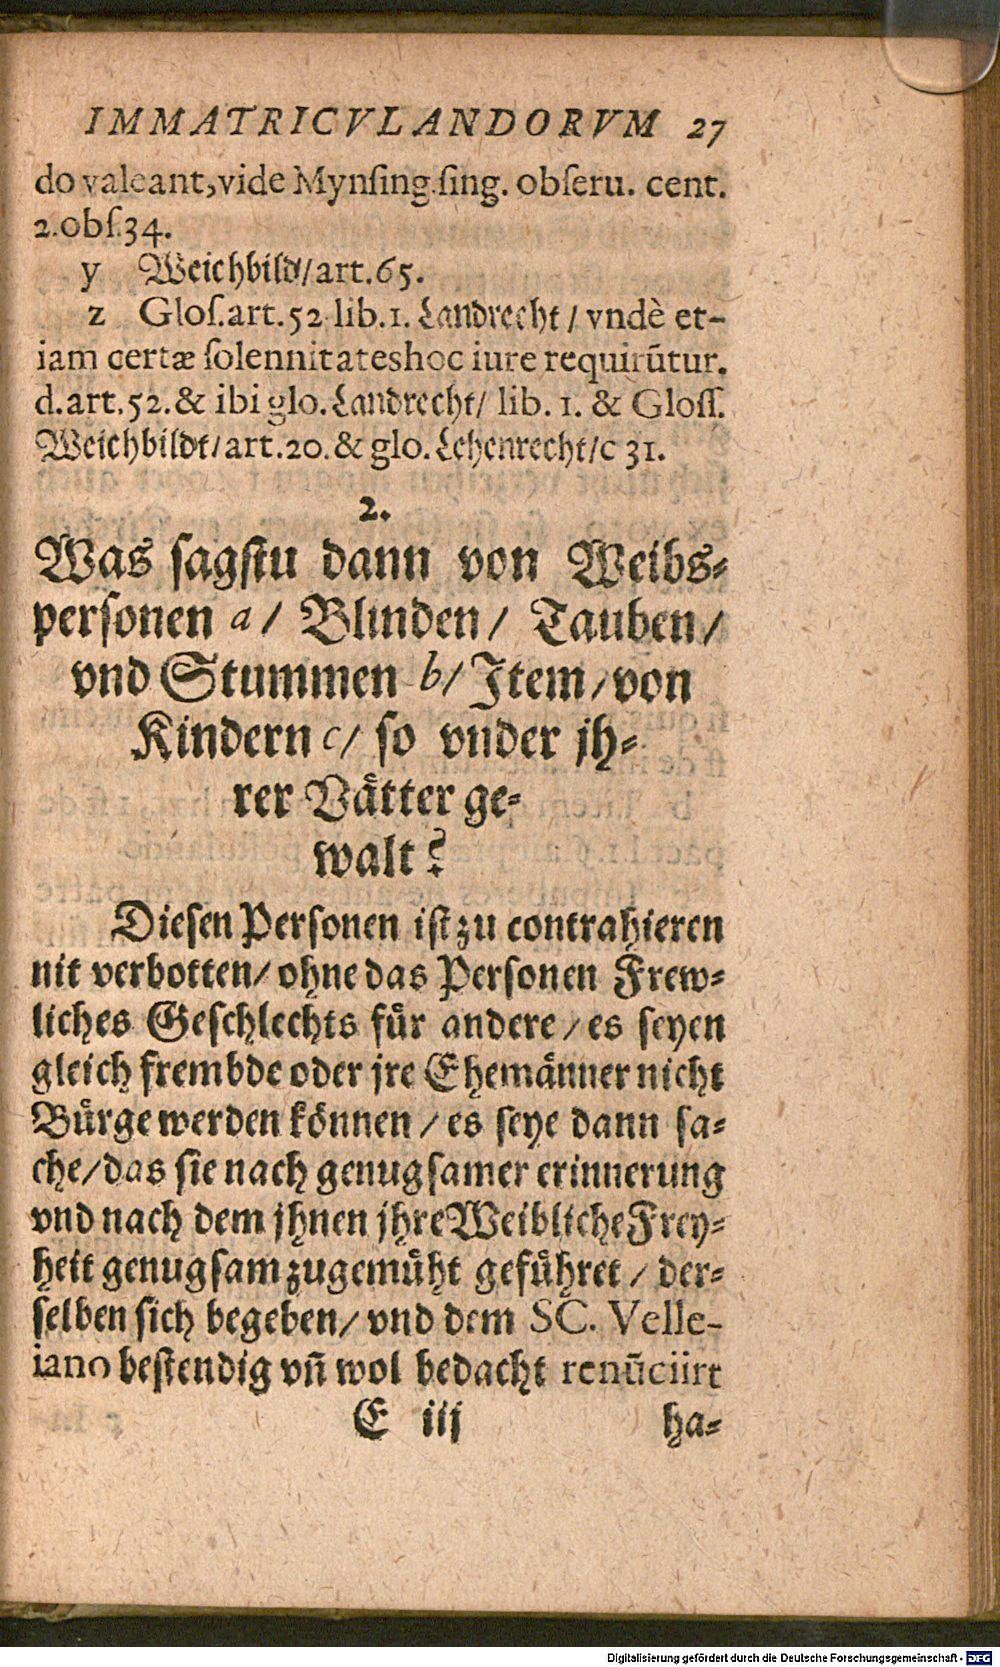 IMMATRICVLANDORVM 27
do valeant, vide Mynſing. ſing. obſeru. cent.
2. obſ. 34.
y Weichbild/ art. 65.
z Gloſ. art. 52 lib. 1. Landrecht / vndè et-
iam certæ ſolennitates hoc iure requirūtur.
d. art. 52. & ibi glo. Landrecht/ lib. 1. & Gloſſ.
Weichbildt/ art. 20. & glo. Lehenrecht/ c 31.
2.
Was ſagſtu dann von Weibs-
perſonen a/ Blinden/ Tauben/
vnd Stummen b/ Item/ von
Kindern c/ ſo vnder jh-
rer Vätter ge-
walt?
Dieſen Perſonen iſt zu contrahieren
nit verbotten/ ohne das Perſonen Frew-
liches Geſchlechts für andere/ es ſeyen
gleich frembde oder jre Ehemänner nicht
Bürge werden können/ es ſeye dann ſa-
che/ das ſie nach genugſamer erinnerung
vnd nach dem jhnen jhre Weibliche Frey-
heit genugſam zugemüht geführet / der-
ſelben ſich begeben/ vnd dem SC. Velle-
iano beſtendig vñ wol bedacht renūciirt
E iij ha-
Digitalisierung gefördert durch die Deutsche Forschungsgemeinschaft - DFG